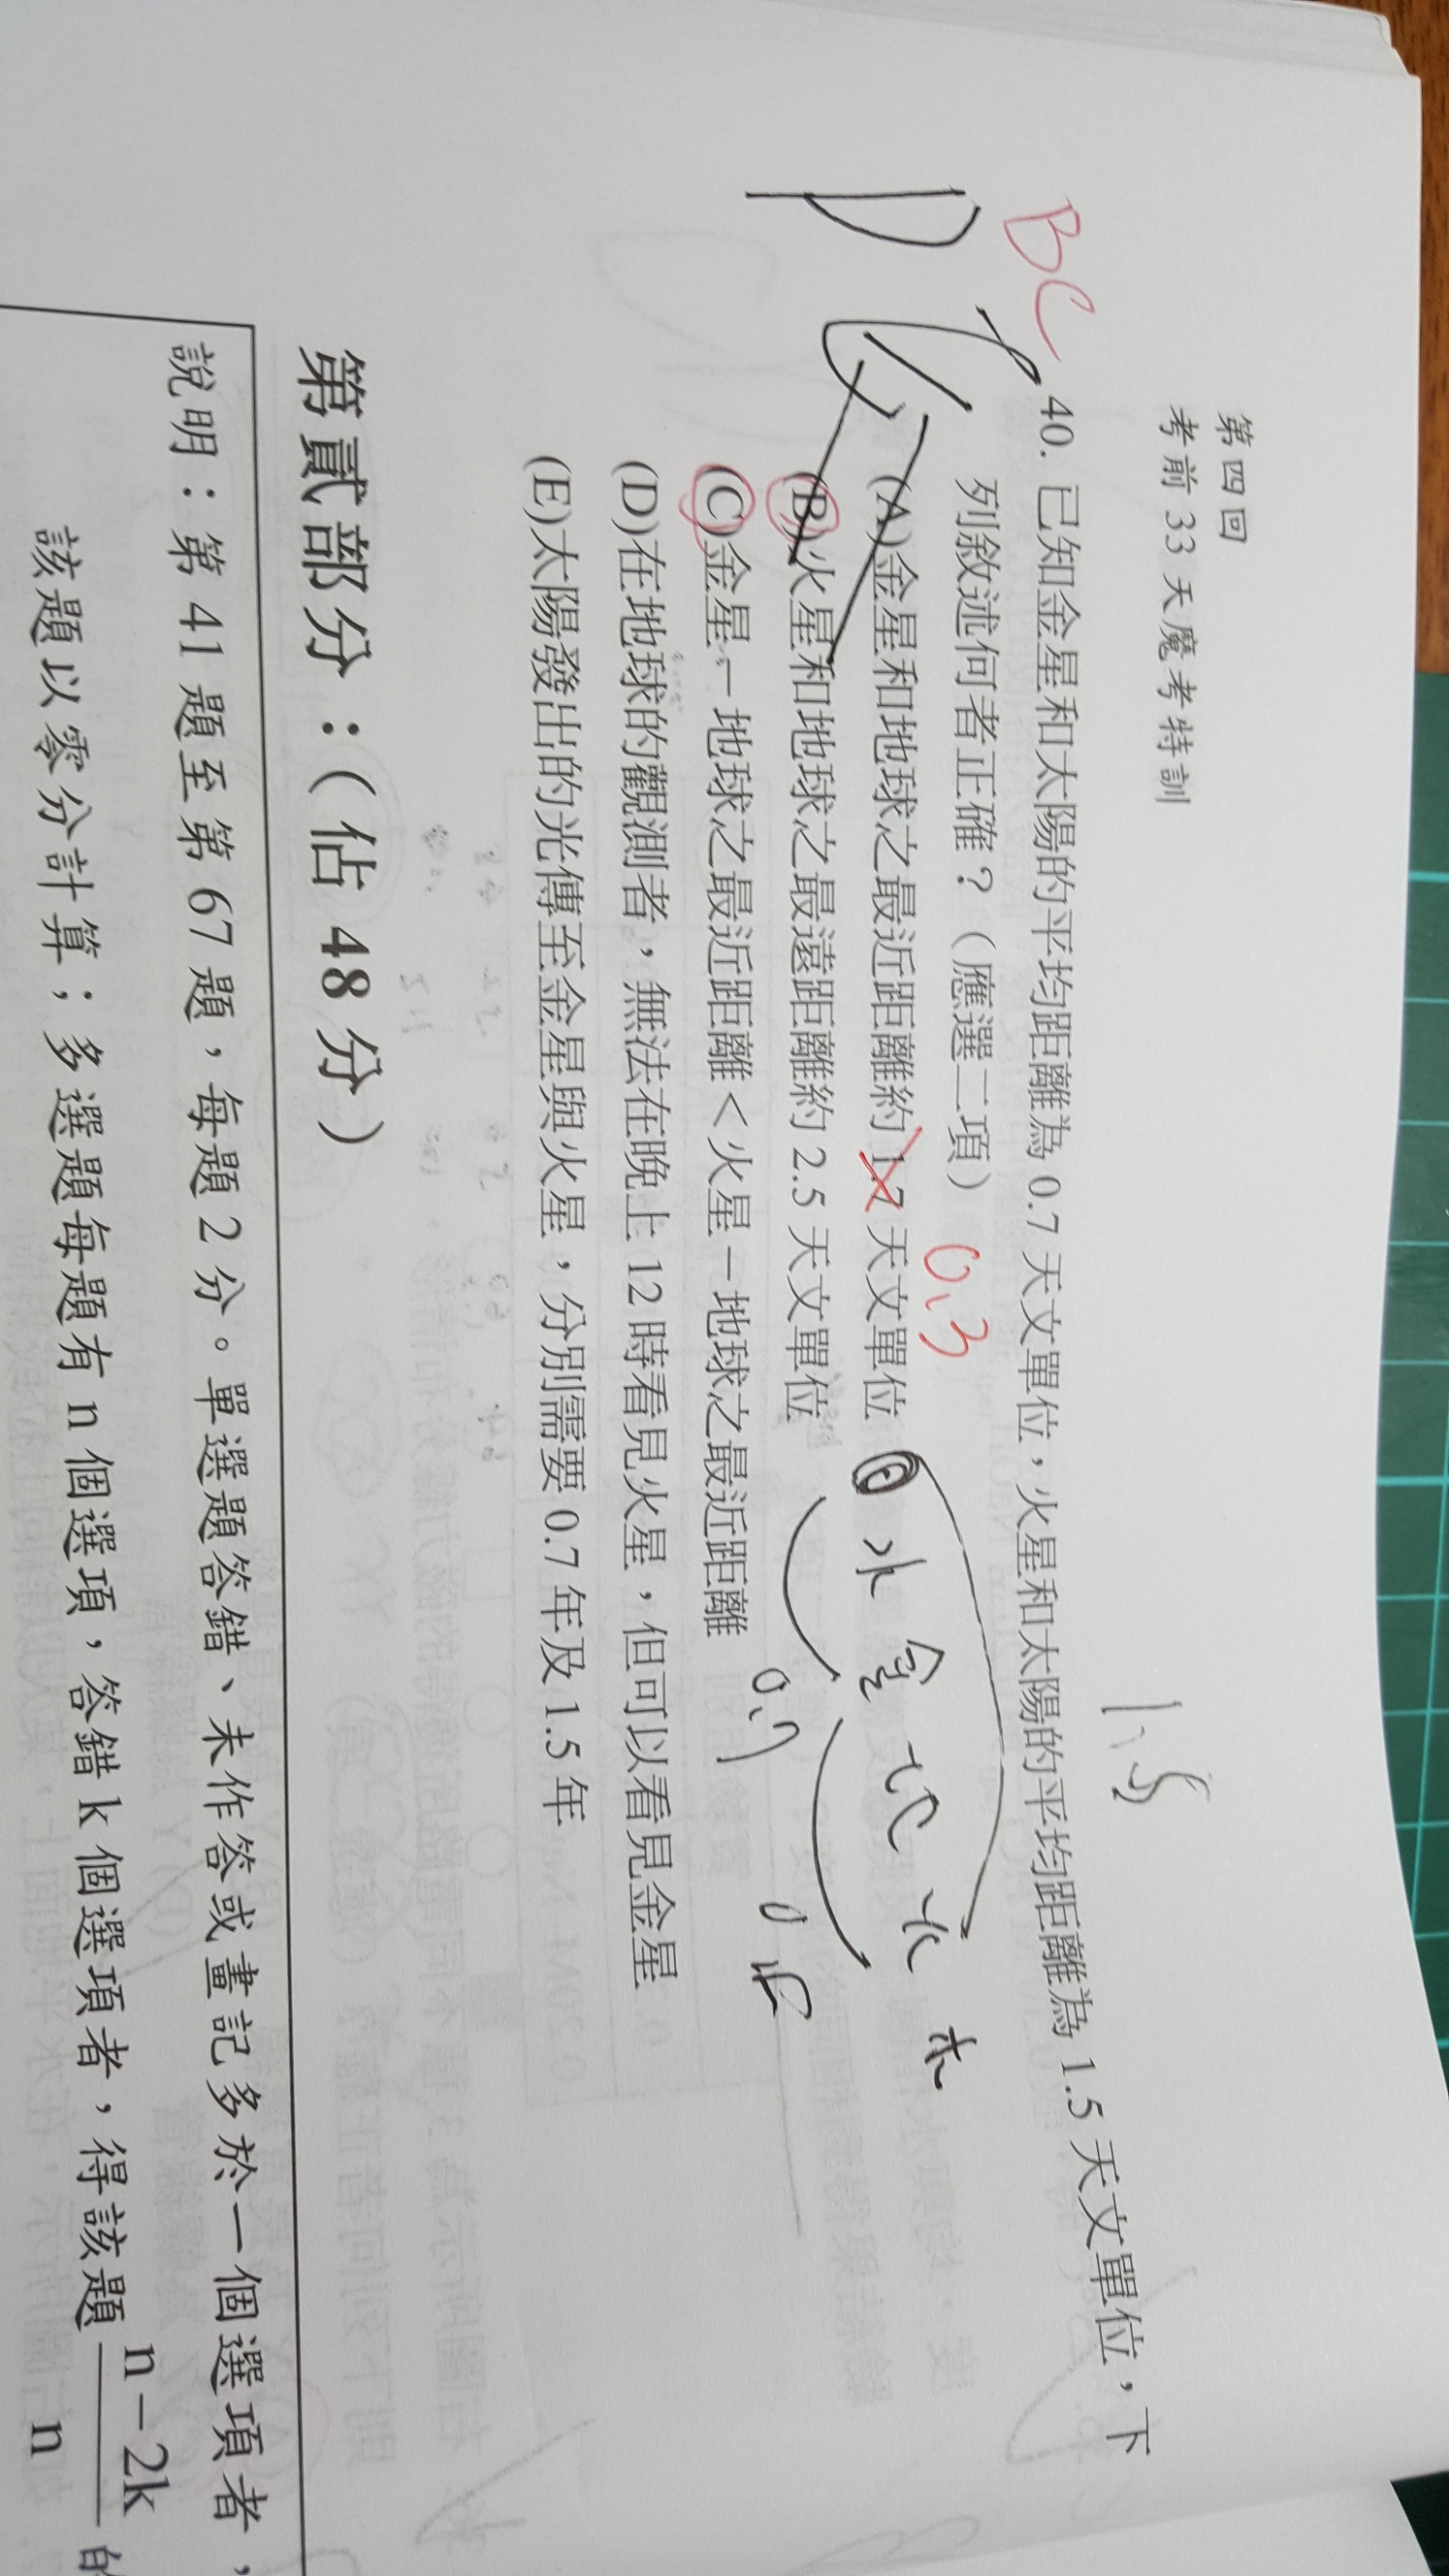 第四回
考前 33 天魔考特訓
BC
1.5
40. 已知金星和太陽的平均距離為 0.7 天文單位，火星和太陽的平均距離為 1.5 天文單位，下
列敘述何者正確？（應選二項）
0.3
(A)金星和地球之最近距離約 1.7 天文單位
水 金 地 火 木
(B)火星和地球之最遠距離約 2.5 天文單位
(C)金星－地球之最近距離＜火星－地球之最近距離
0.7
(D)在地球的觀測者，無法在晚上 12 時看見火星，但可以看見金星
(E)太陽發出的光傳至金星與火星，分別需要 0.7 年及 1.5 年
第貳部分：（佔 48 分）
說明：第 41 題至第 67 題，每題 2 分。單選題答錯、未作答或畫記多於一個選項者，
該題以零分計算；多選題每題有 n 個選項，答錯 k 個選項者，得該題 n－2k / n 的